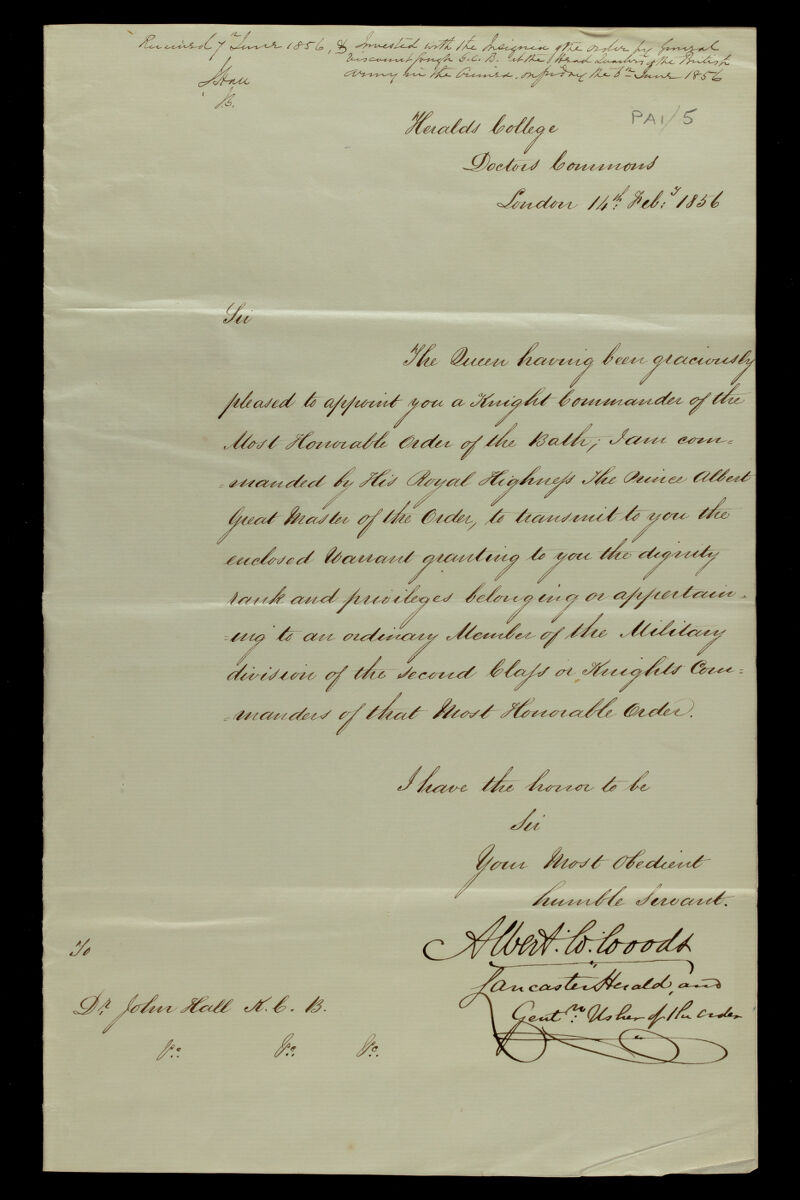 Received 7th June 1856, & Invested with the Insignia of the order by General
Viscount Gough G.C.B. at the Head Quarters of the British
Army in the Crimea, on friday the 6th June 1856
J Hall
PA1/5
Heralds College
Doctors Commons
London 14th: Feb:y 1856
Sir
The Queen having been graciously
pleased to appoint you a Knight Commander of the
Most Honorable Order of the Bath; I am com=
=manded by His Royal Highneſs The Prince Albert
Great Master of the Order, to transmit to you the
enclosed Warrant granting to you the dignity
rank and privileges belonging or appertain=
=ing to an ordinary Member of the Military
division of the second Claſs or Knights Com=
=manders of that Most Honorable Order.
I have the honor to be
Sir
Your Most Obedient
humble Servant.
Albert: W: Woods
Lancaster Herald, and
Gentn: Usher of the Order
To
Dr. John Hall K. C. B.
&c: &c: &c: